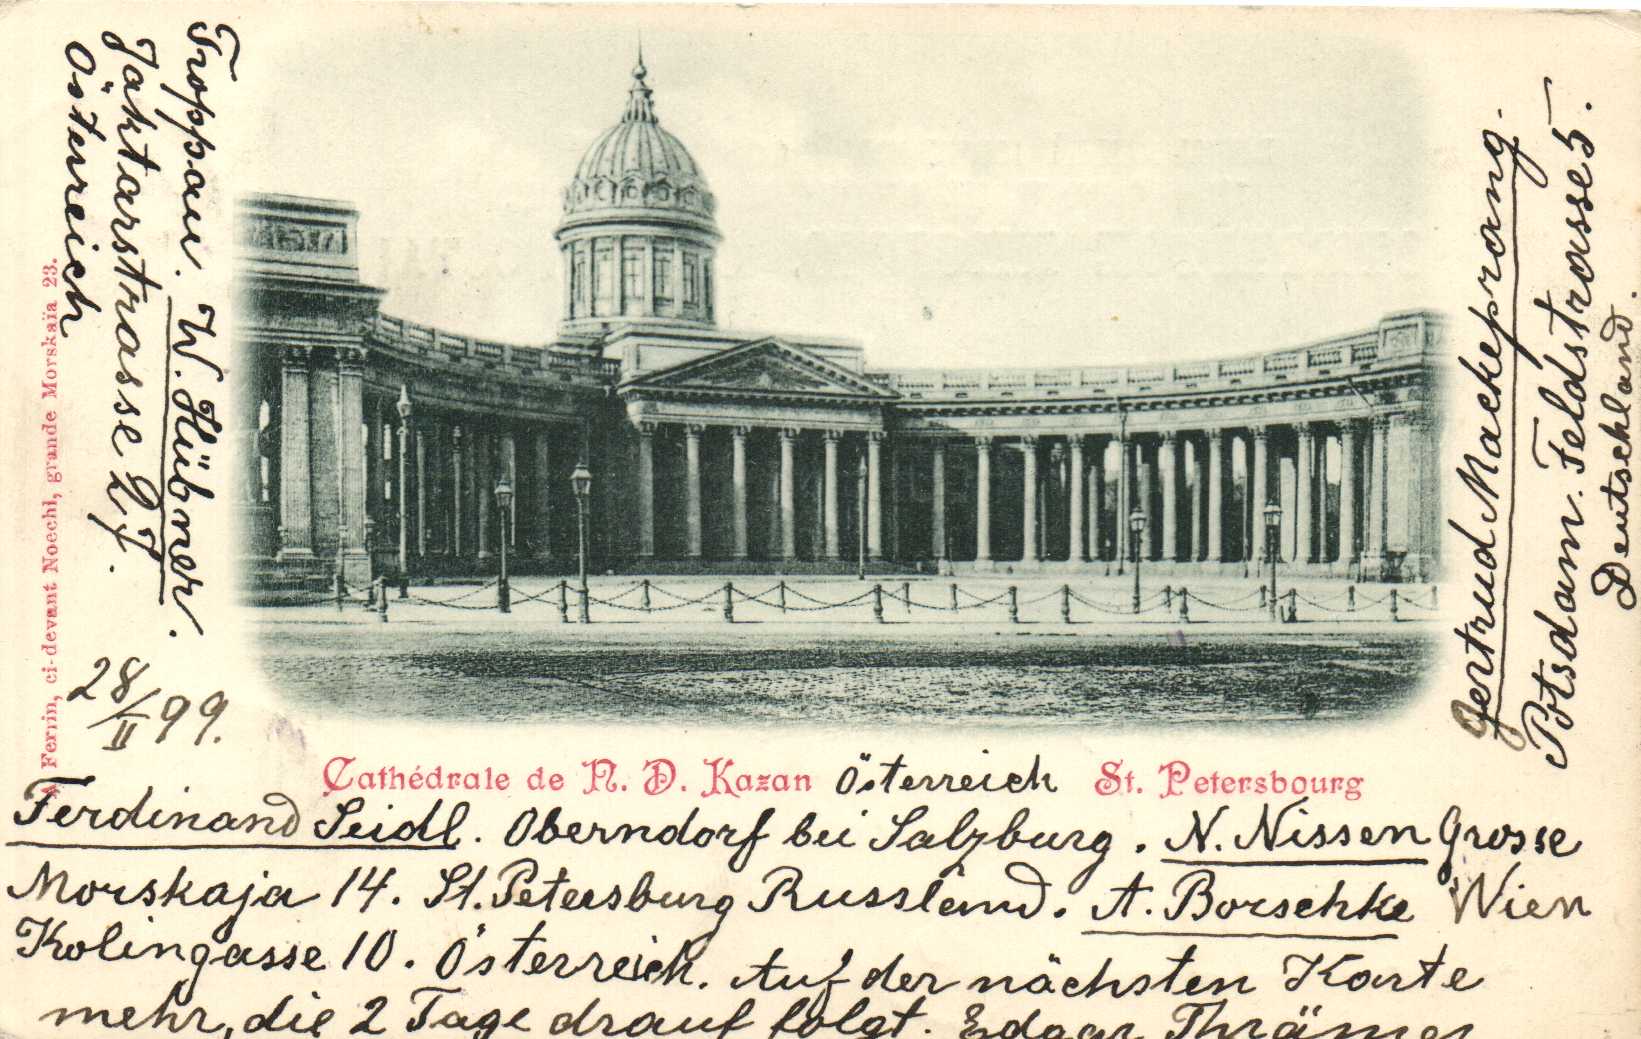 Troppau. W. Hübner.
Jaktarstrasse 27.
Österreich
A Ferrin, ci-devant Noechl, grande Morskaïa 23.
28/II 99.
Gertrud Mackeprang.
Potsdam. Feldstrasse 5.
Deutschland.
Cathédrale de N. D. Kazan
St. Petersbourg
Österreich
Ferdinand Seidl. Oberndorf bei Salzburg. N. Nissen Grosse
Morskaja 14. St. Petersburg Russland. A. Borschke Wien
Kolingasse 10. Österreich. Auf der nächsten Karte
mehr, die 2 Tage drauf folgt. Edgar Thrämer